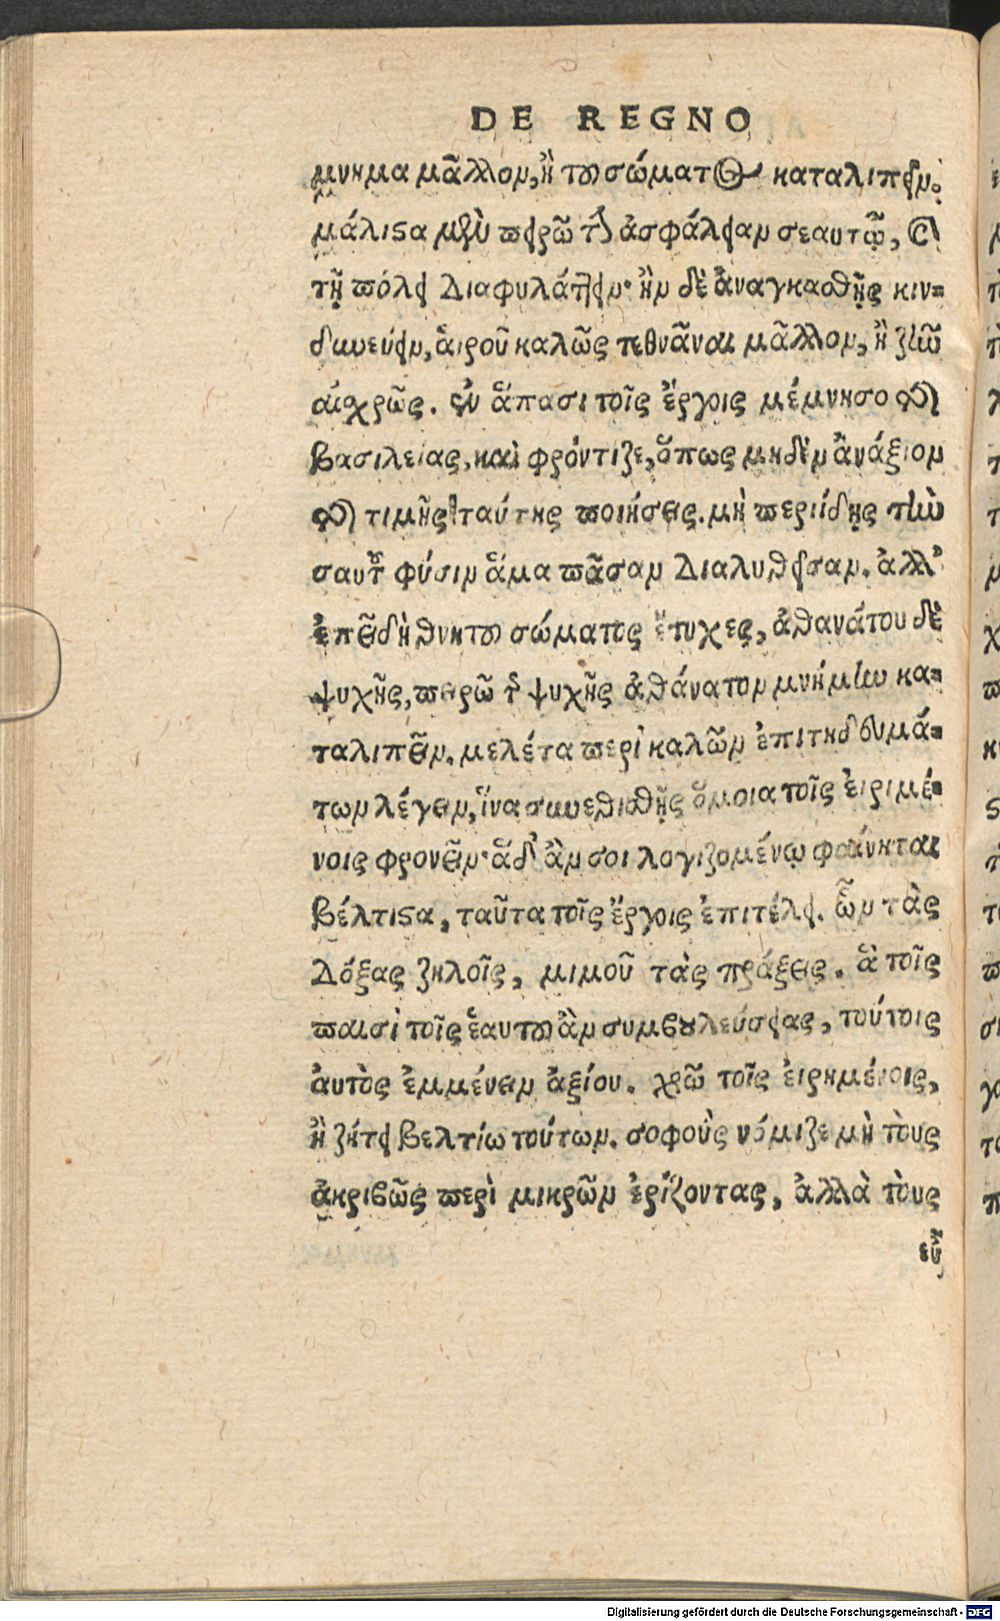 DE REGNO
μνημα μᾶλλον, ἢ τοῦ σώματος καταλιπεῖν.
μάλιστα μὲν πειρῶ τὴν ἀσφάλειαν σεαυτῷ, καὶ
τῇ πόλει διαφυλάττειν· ἢν δὲ ἀναγκασθῇς κιν=
δυνεύειν, αἱροῦ καλῶς τεθνᾶναι μᾶλλον, ἢ ζῆν
αἰσχρῶς. ἐν ἅπασι τοῖς ἔργοις μέμνησο τῆς
βασιλείας, καὶ φρόντιζε, ὅπως μηδὲν ἀνάξιον
τῆς τιμῆς ταύτης ποιήσεις. μὴ περιίδῃς τὴν
σαυτοῦ φύσιν ἅμα πᾶσαν διαλυθεῖσαν. ἀλλ'
ἐπειδὴ θνητοῦ σώματος ἔτυχες, ἀθανάτου δὲ
ψυχῆς, πειρῶ τῆς ψυχῆς ἀθάνατον μνήμην κα=
ταλιπεῖν. μελέτα περὶ καλῶν ἐπιτηδευμά=
των λέγειν, ἵνα συνεθισθῇς ὅμοια τοῖς εἰριμέ=
νοις φρονεῖν· ἃ δ' ἄν σοι λογιζομένῳ φαίνηται
βέλτιστα, ταῦτα τοῖς ἔργοις ἐπιτέλει. ὧν τὰς
δόξας ζηλοῖς, μιμοῦ τὰς πράξεις. ἃ τοῖς
παισὶ τοῖς ἑαυτοῦ ἂν συμβουλεύσειας, τούτοις
αὐτὸς ἐμμένειν ἀξίου. χρῶ τοῖς εἰρημένοις,
ἢ ζήτει βελτίω τούτων. σοφοὺς νόμιζε μὴ τοὺς
ἀκριβῶς περὶ μικρῶν ἐρίζοντας, ἀλλὰ τοὺς
εὖ
Digitalisierung gefördert durch die Deutsche Forschungsgemeinschaft - DFG